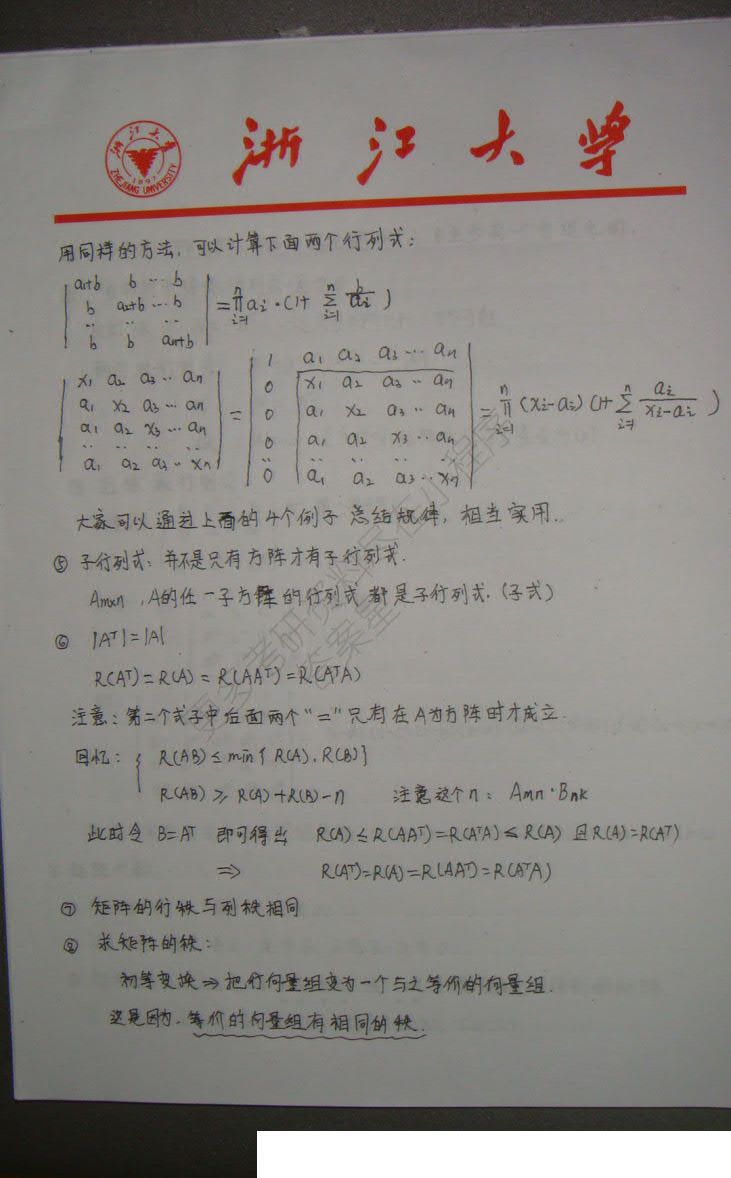 浙江大学
浙江大学
ZHEJIANG UNIVERSITY
1897
用同样的方法,可以计算下面两个行列式:
| a1+b b ⋯ b |
| b a2+b ⋯ b |
| ‥ ‥ ‥ |
| b b an+b | = ∏_{i=1}^{n} ai · (1+ ∑_{i=1}^{n} b/ai )
| x1 a2 a3 ⋯ an | = | 1 a1 a2 a3 ⋯ an |
| a1 x2 a3 ⋯ an | | 0 x1 a2 a3 ⋯ an |
| a1 a2 x3 ⋯ an | | 0 a1 x2 a3 ⋯ an |
| ‥ ‥ ‥ ‥ | | 0 a1 a2 x3 ⋯ an |
| a1 a2 a3 ⋯ xn | | ‥ ‥ ‥ ‥ ‥ |
| 0 a1 a2 a3 ⋯ xn | = ∏_{i=1}^{n} (xi-ai) (1+ ∑_{i=1}^{n} ai/(xi-ai) )
大家可以通过上面的4个例子总结规律,相当实用..
⑤ 子行列式:并不是只有方阵才有子行列式.
Am×n ,A的任一子方阵的行列式都是子行列式.(子式)
⑥ |AT|=|A|
R(AT)=R(A)=R(AAT)=R(ATA)
注意:第二个式子中后面两个“=”只有在A为方阵时才成立
回忆: { R(AB)≤min{R(A),R(B)}
R(AB)≥R(A)+R(B)-n 注意这个n: Amn·Bnk
此时令 B=AT 即可得出 R(A)≤R(AAT)=R(ATA)≤R(A) 且R(A)=R(AT)
⇒ R(AT)=R(A)=R(AAT)=R(ATA)
⑦ 矩阵的行秩与列秩相同
⑧ 求矩阵的秩:
初等变换⇒把行向量组变为一个与之等价的向量组.
这是因为,等价的向量组有相同的秩.
更多考研资料尽在小程序
答案星